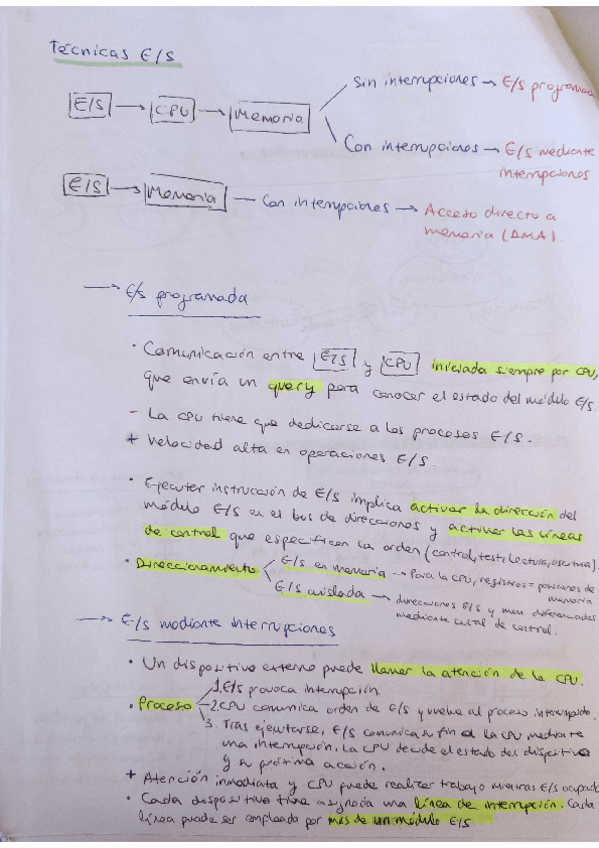 Técnicas E/S
E/S → CPU → Memoria
Sin interrupciones → E/S programada
Con interrupciones → E/S mediante
interrupciones
E/S → Memoria — Con interrupciones → Acceso directo a
memoria (DMA).
→ E/S programada
• Comunicación entre E/S y CPU iniciada siempre por CPU,
que envía un query para conocer el estado del módulo E/S.
- La CPU tiene que dedicarse a los procesos E/S.
+ Velocidad alta en operaciones E/S.
• Ejecutar instrucción de E/S implica activar la dirección del
módulo E/S en el bus de direcciones y activar las líneas
de control que especifican la orden (control, test, lectura, escritura).
• Direccionamiento
E/S en memoria → Para la CPU, registros = posiciones de
memoria
E/S aislada → direcciones E/S y mem diferenciadas
mediante señal de control.
→ E/S mediante interrupciones
• Un dispositivo externo puede llamar la atención de la CPU.
• Proceso
1. E/S provoca interrupción
2. CPU comunica orden de E/S y vuelve al proceso interrumpido.
3. Tras ejecutarse, E/S comunica su fin a la CPU mediante
una interrupción. La CPU decide el estado del dispositivo
y su próxima acción.
+ Atención inmediata y CPU puede realizar trabajo mientras E/S ocupado
• Cada dispositivo tiene asignada una línea de interrupción. Cada
línea puede ser empleada por más de un módulo E/S